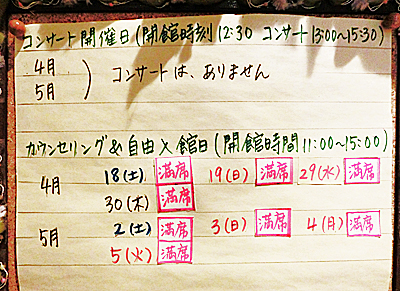 コンサート開催日(開館時刻12:30 コンサート13:00~15:30)
4月
5月 ) コンサートは、ありません
カウンセリング&自由入館日(開館時間11:00~15:00)
4月 18(土) 満席 19(日) 満席 29(水) 満席
30(木) 満席
5月 2(土) 満席 3(日) 満席 4(月) 満席
5(火) 満席